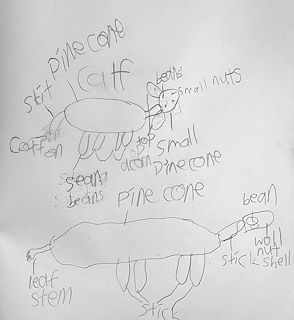 pine cone
calf
stit
beans
small nuts
cotton
top
acorn
small
pine cone
beans
pine cone
bean
leaf
stem
stick
wall
nut
shell
stick